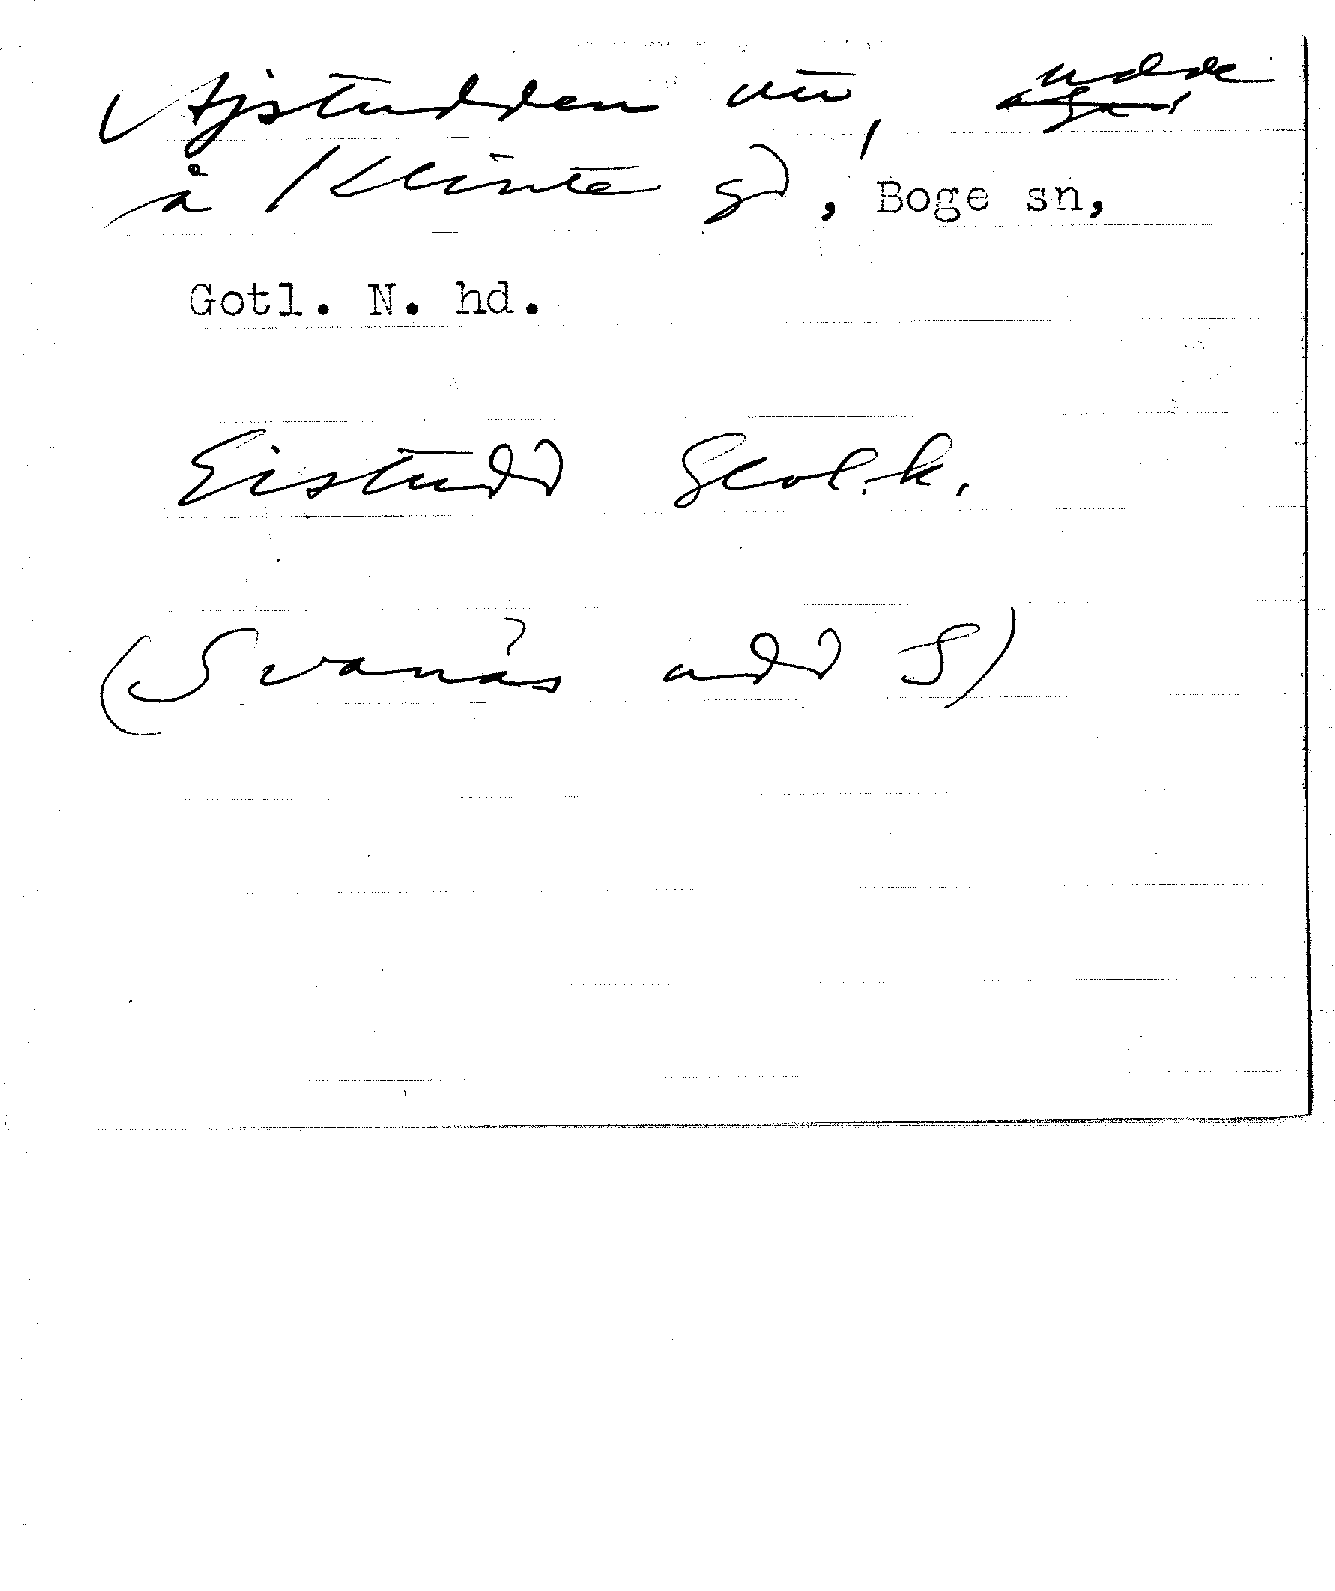 Ajstudden utu, udde
å Klinte gd, Boge sn,
Gotl. N. hd.
Eistudd Geol.k.
(Svanås udd S)